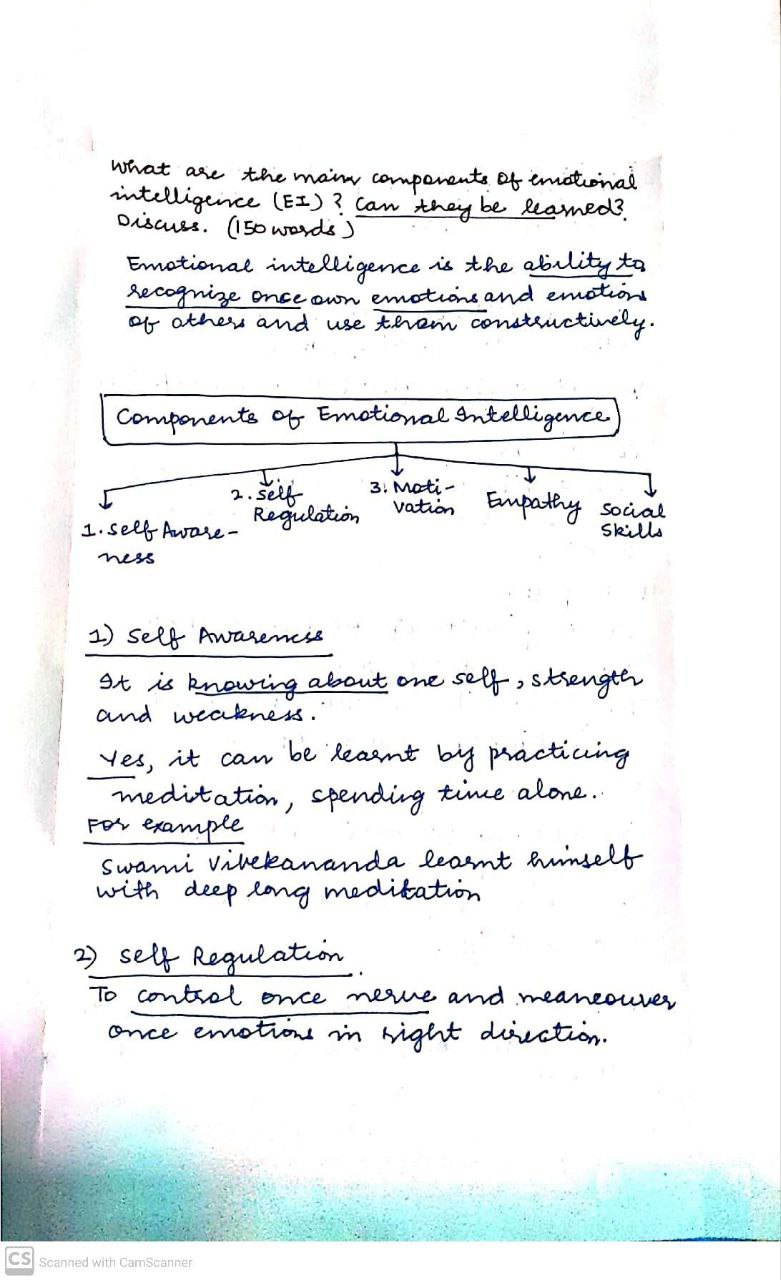 What are the main components of emotional
intelligence (EI)? Can they be learned?
Discuss. (150 words)
Emotional intelligence is the ability to
recognize once own emotions and emotions
of others and use them constructively.
Components of Emotional Intelligence
1. Self Aware-
ness
2. Self
Regulation
3. Moti-
vation
Empathy
Social
Skills
1) Self Awareness
It is knowing about one self, strength
and weakness.
Yes, it can be learnt by practicing
meditation, spending time alone.
For example
Swami Vivekananda learnt himself
with deep long meditation
2) Self Regulation
To control once nerve and meaneouver
once emotions in right direction.
CS Scanned with CamScanner